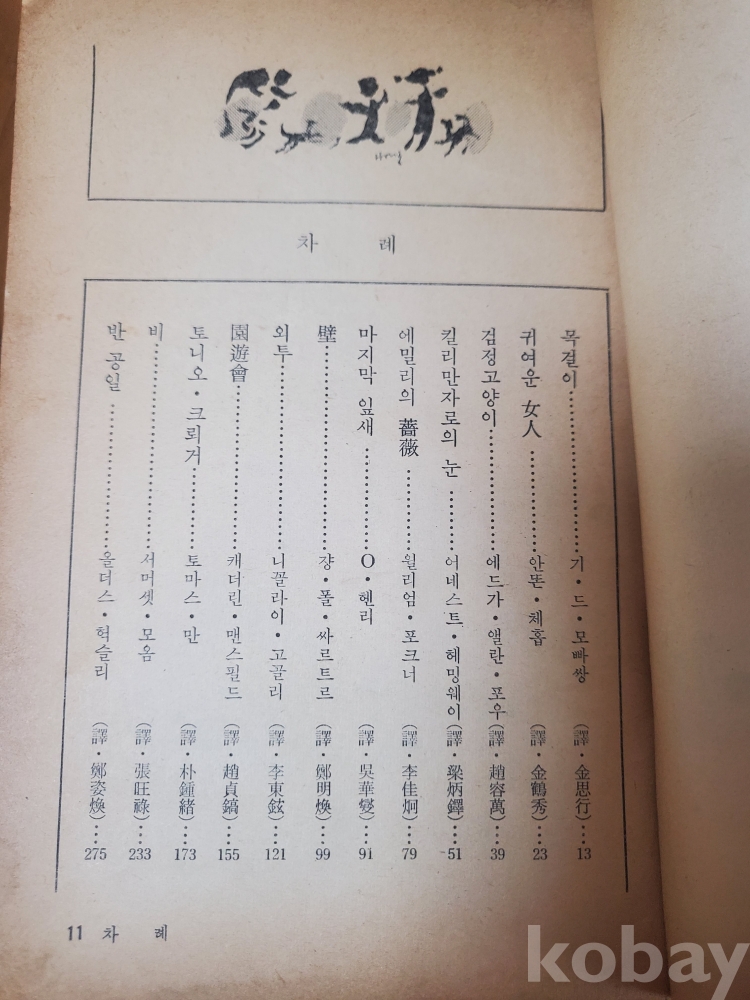 차 례
목걸이……기·드·모빠쌍 (譯·金思行)…13
귀여운 女人……안똔·체홉 (譯·金鶴秀)…23
검정고양이……에드가·앨란·포우 (譯·趙容萬)…39
킬리만자로의 눈……어네스트·헤밍웨이 (譯·梁炳鐸)…51
에밀리의 薔薇……윌리엄·포크너 (譯·李佳炯)…79
마지막 잎새……O·헨리 (譯·吳華燮)…91
壁……쟝·폴·싸르트르 (譯·鄭明煥)…99
외투……니꼴라이·고골리 (譯·李東鉉)…121
園遊會……캐더린·맨스필드 (譯·趙貞鎬)…155
토니오·크뢰거……토마스·만 (譯·朴鍾緖)…173
비……서머셋·모옴 (譯·張旺祿)…233
반 공일……올더스·헉슬리 (譯·鄭姿煥)…275
11 차 례
kobay